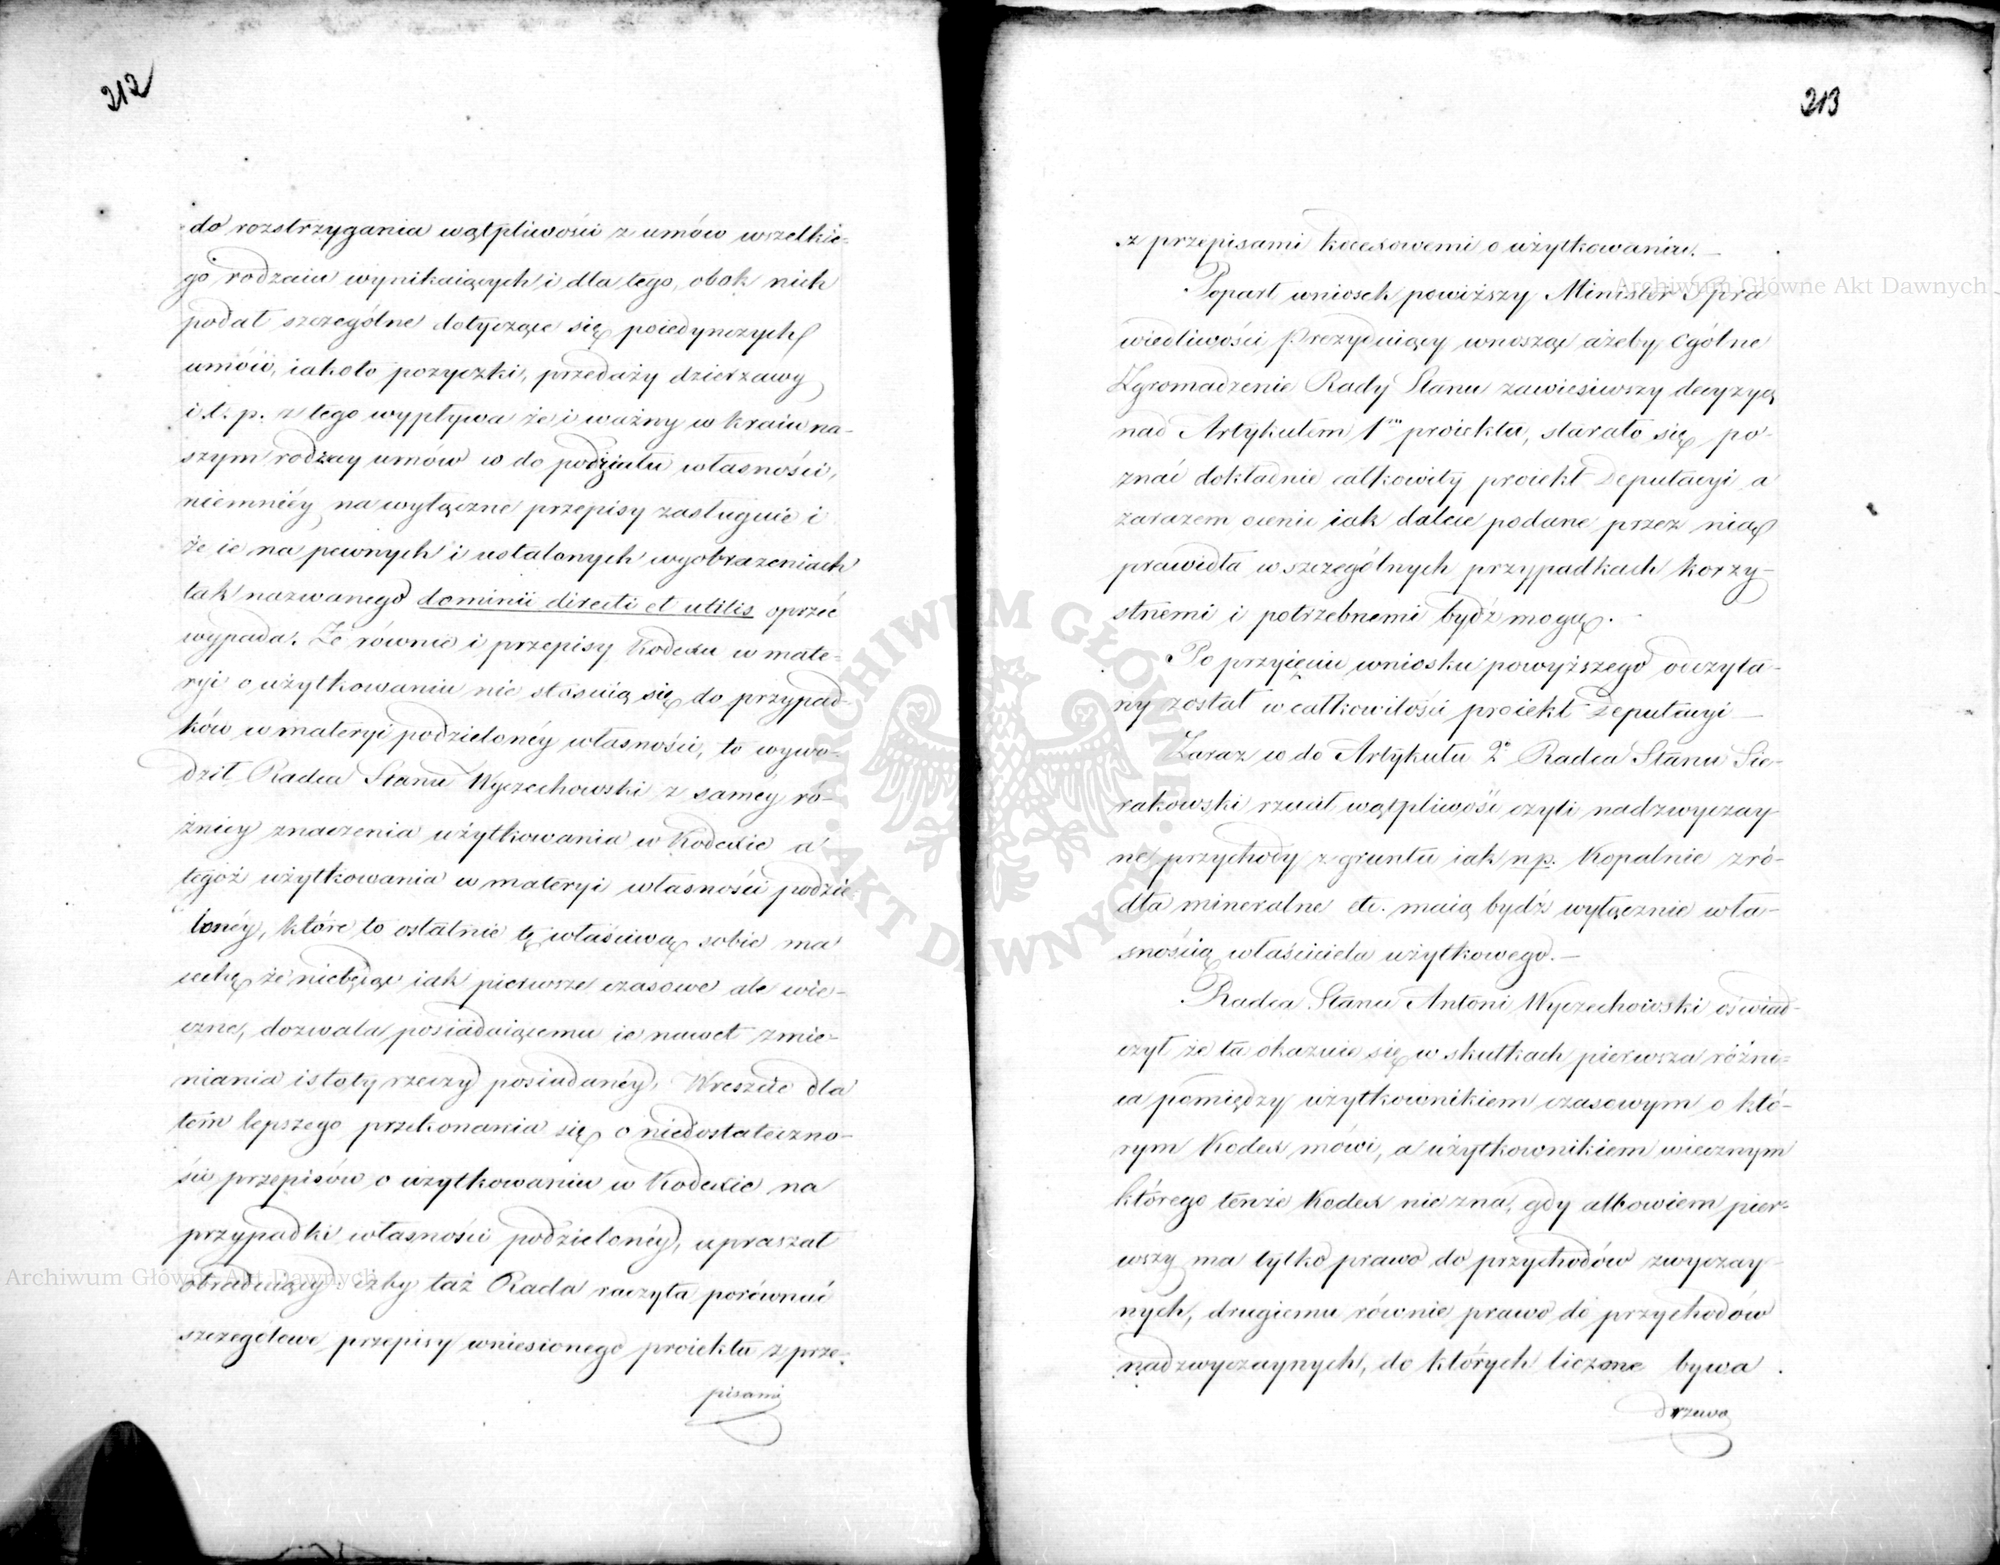 212
do rozstrzygania wątpliwości z umów wszelkie-
go rodzaiu wynikaiących i dla tego, obok nich
podał szczególne dotyczące się poiedynczych
umów, iakoto pożyczki, przedaży dzierzawy
i.t.p. z tego wypływa że i ważny w kraiu na-
szym rodzay umów w do podziału własności,
niemniéy na wyłączne przepisy zasługuie i
że ie na pewnych i ustalonych wyobrazeniach
tak nazwanego dominii directi et utilis oprzéć
wypada. Że równie i przepisy Kodexu w mate-
ryi o użytkowaniu nie stósuią się do przypad-
ków w materyi podzielonéy własności, to wywo-
dził Radca Stanu Wyczechowski z saméy ró-
żnicy znaczenia użytkowania w Kodexie a
tegoż użytkowania w materyi własności podzie-
lonéy, które to ostatnie tę właściwą sobie ma
cechę że niebędąc iak pierwsze czasowe ale wie-
czne, dozwala posiadaiącemu ie nawet zmie-
niania istoty rzeczy posiadanéy. Wreszcie dla
tém lepszego przekonania się o niedostateczno-
ści przepisów o użytkowaniu w Kodexie na
przypadki własności podzielonéy, upraszał
obraduiącéy ażeby taż Rada raczyła porównać
szczegółowe przepisy wniesionego proiektu z prze-
pisami
213
z przepisami kodexowemi o użytkowaniu.—
Poparł wniosek powyższy Minister Spra
wiedliwości Prezyduiący wnosząc ażeby Ogólne
Zgromadzenie Rady Stanu zawiesiwszy decyzyą
nad Artykułem 1m proiektu, starało się po-
znać dokładnie całkowity proiekt Deputacyi a
zarazem ocenić iak dalece podane przez nią
prawidła w szczególnych przypadkach korzy-
stnemi i potrzebnemi bydź mogą.—
Po przyięciu wniosku powyższego odczyta-
ny został w całkowitości proiekt Deputacyi—
Zaraz w do Artykułu 2o Radca Stanu Sie-
rakowski rzucił wątpliwość czyli nadzwyczay
ne przychody z gruntu iak np. Kopalnie zró-
dła mineralne etc. maią bydź wyłącznie wła-
snością właściciela użytkowego.—
Radca Stanu Antoni Wyczechowski oświad-
czył że ta okazuie się w skutkach pierwsza różni-
ca pomiędzy użytkownikiem czasowym o któ-
rym Kodex mówi, a użytkownikiem wiecznym
którego tenże Kodex nie zna, gdy albowiem pier-
wszy ma tylko prawo do przychodów zwyczay-
nych, drugiemu równie prawo do przychodów
nadzwyczaynych, do których liczone bywa
drzewo
Archiwum Główne Akt Dawnych
Archiwum Główne Akt Dawnych
ARCHIWUM GŁÓWNE AKT DAWNYCH